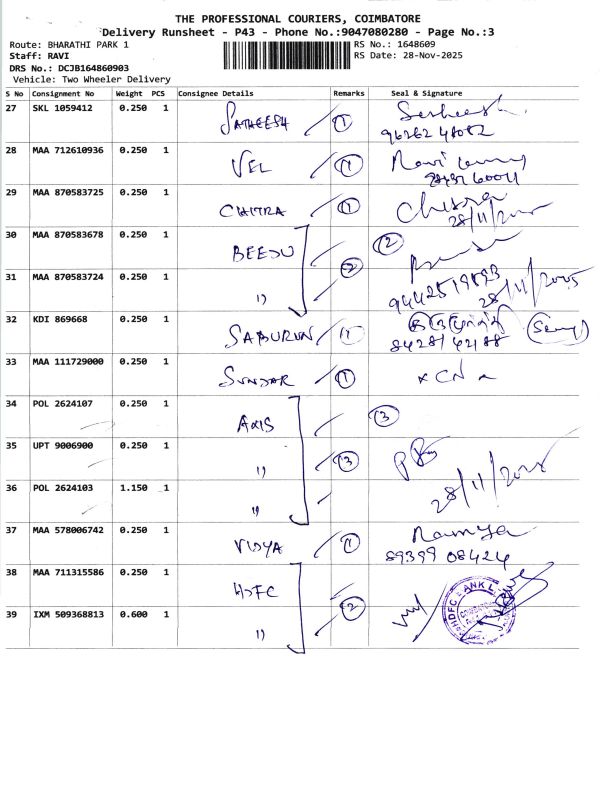 THE PROFESSIONAL COURIERS, COIMBATORE
Delivery Runsheet - P43 - Phone No.:9047080280 - Page No.:3
Route: BHARATHI PARK 1
RS No.: 1648609
Staff: RAVI
RS Date: 28-Nov-2025
DRS No.: DCJB164860903
Vehicle: Two Wheeler Delivery
S No Consignment No Weight PCS Consignee Details Remarks Seal & Signature
27 SKL 1059412 0.250 1 SATHEESH 1
28 MAA 712610936 0.250 1 VEL 1
29 MAA 870583725 0.250 1 CHITRA 1 Chitra
28/11/2025
30 MAA 870583678 0.250 1 BEEDU 2
31 MAA 870583724 0.250 1 11 2
28/11/2025
32 KDI 869668 0.250 1 SABURUN 1
84281 42188
33 MAA 111729000 0.250 1 SUNDAR 1 x CN
34 POL 2624107 0.250 1 AXIS 3
35 UPT 9006900 0.250 1 11 3
36 POL 2624103 1.150 1 11 28/11/2025
37 MAA 578006742 0.250 1 VIDYA 1 Ramya
89399 08424
38 MAA 711315586 0.250 1 HDFC
39 IXM 509368813 0.600 1 11 2 HDFC BANK